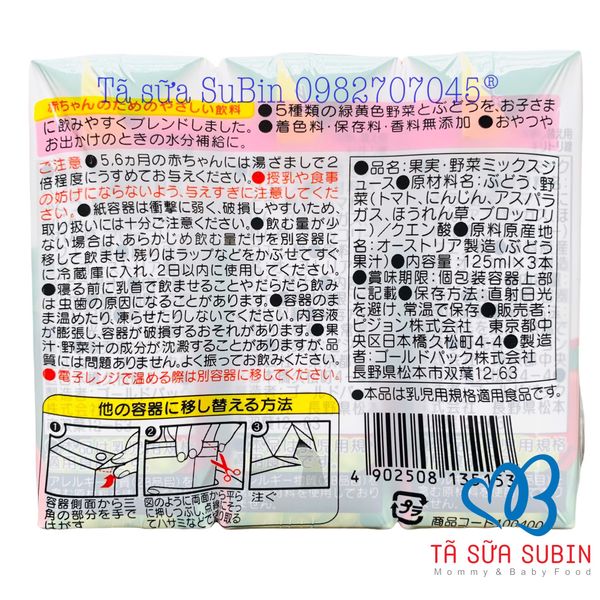 Tã sữa SuBin 0982707045®
赤ちゃんのためのやさしい飲料
●5種類の緑黄色野菜とぶどうを、お子さま
に飲みやすくブレンドしました。●着色料・保存料・香料無添加 ●おやつや
お出かけのときの水分補給に。
ご注意 ●5、6ヵ月の赤ちゃんには湯ざまして2
倍程度にうすめてお与えください。●授乳や食事
の妨げにならないよう、与えすぎに注意してくださ
い。●紙容器は衝撃に弱く、破損しやすいため、
取り扱いには十分ご注意ください。●飲む量が少
ない場合は、あらかじめ飲む量だけを別容器に
移して飲ませ、残りはラップなどをかぶせてすぐ
に冷蔵庫に入れ、2日以内に使用してください。
●寝る前に乳首で飲ませることやだらだら飲み
は虫歯の原因になることがあります。●容器のま
ま温めたり、凍らせたりしないでください。内容液
が膨張し、容器が破損するおそれがあります。●果
汁・野菜汁の成分が沈澱することがありますが、品
質には問題ありません。よく振ってお飲みください。
●電子レンジで温める際は別容器に移してください。
●品名:果実・野菜ミックスジ
ュース●原材料名:ぶどう、野
菜(トマト、にんじん、アスパラ
ガス、ほうれん草、ブロッコリ
ー)/クエン酸●原料原産地
名:オーストリア製造(ぶどう
果汁)●内容量:125ml×3本
●賞味期限:個包装容器上部
に記載●保存方法:直射日光
を避け、常温で保存●販売者:
ピジョン株式会社 東京都中
央区日本橋久松町4-4●製造
者:ゴールドパック株式会社
長野県松本市双葉12-63
●本品は乳児用規格適用食品です。
他の容器に移し替える方法
1
2
3
容器側面から三
角の部分を手で
はがす
図のように両面から平ら
に押しつぶし、点線にそっ
てハサミなどで切り取る
注ぐ
4 902508 135153
プラ
商品コード
TÃ SỮA SUBIN
Mommy & Baby Food